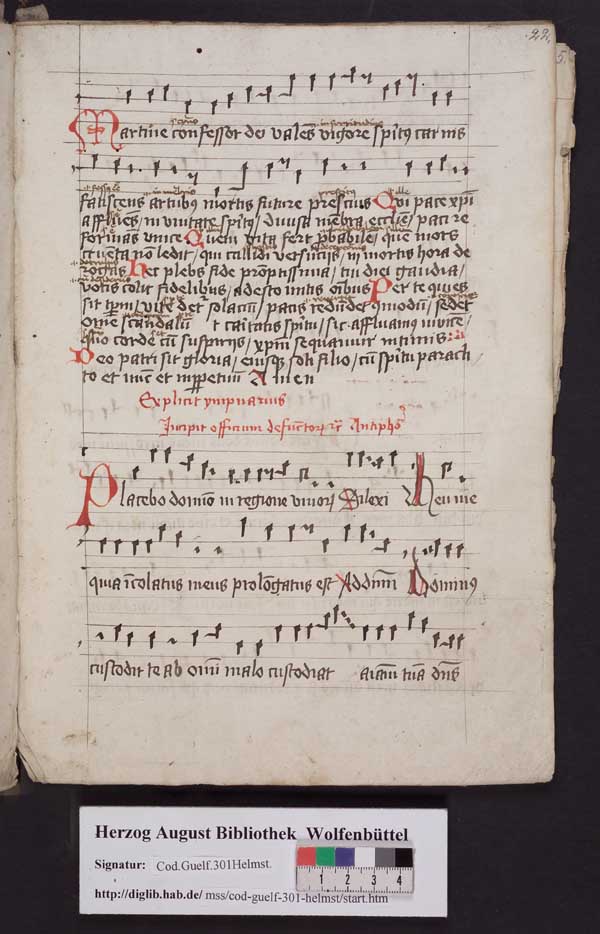 22
Martine confessor dei valens vigore spiritus carnis
fatiscens artubus mortis future prescius Qui pace xpi
affluens in unitate spiritus divisa membra ecclesie paci re
formans unice Quem vita fert probabilem quem mors
cruenta non ledit qui callidi versucijs in mortis hora de
rogas Hec plebs fide promptissima tui diei gaudia
votis colit fidelibus adesto mitis omnibus Per te quies
sit temporum vite detur solacium pacis redundet commodum sedet
omne scandalum et caritatis spiritu sic affluamus
corde cum suspirijs xpm sequamur intimis
Deo patri sit gloria eiusque soli filio cum spiritu paracli
to et nunc et in perpetuum Amen
Explicit ympnarius
Incipit officium defunctorum Antiphona
Placebo domino in regione vivorum Dilexi Heu me
quia incolatus meus prolongatus est Ad dominum Dominus
custodit te ab omni malo custodiat animam tuam dominus
Herzog August Bibliothek Wolfenbüttel
Signatur: Cod.Guelf.301Helmst.
1 2 3 4
http://diglib.hab.de/ mss/cod-guelf-301-helmst/start.htm